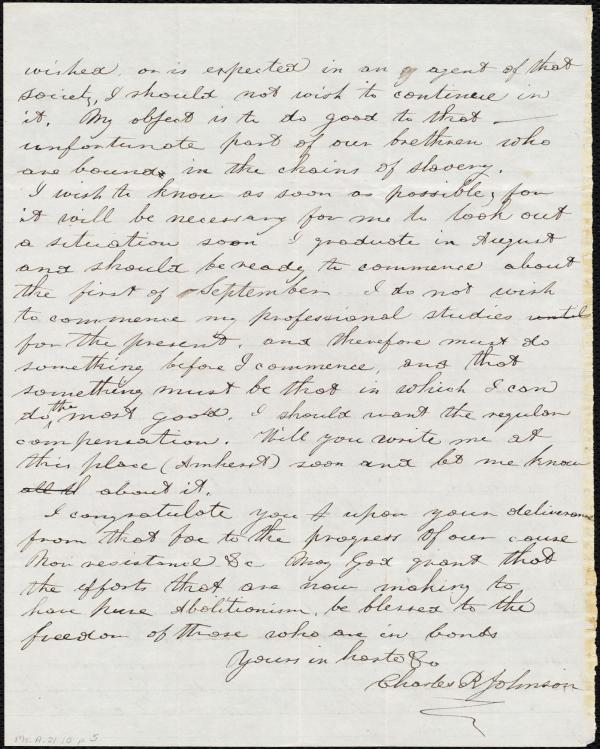 wished, or is expected in an agent of that
society, I should not wish to continue in
it. My object is to do good to that —
unfortunate part of our brethren who
are bound in the chains of slavery.
I wish to know as soon as possible, for
it will be necessary for me to look out
a situation soon I graduate in August
and should be ready to commence about
the first of September I do not wish
to commence my professional studies until
for the present, and therefore must do
something before I commence, and that
something must be that in which I can
do the most good. I should want the regular
compensation. Will you write me at
this place (Amherst) soon and let me know
about it.
I congratulate you upon your deliverance
from that foe to the progress of our cause
Non resistance &c May God grant that
the efforts that are now making to
have pure Abolitionism, be blessed to the
freedom of those who are in bonds
Yours in haste &c
Charles R Johnson
Ms. A. 21. 10 p 5